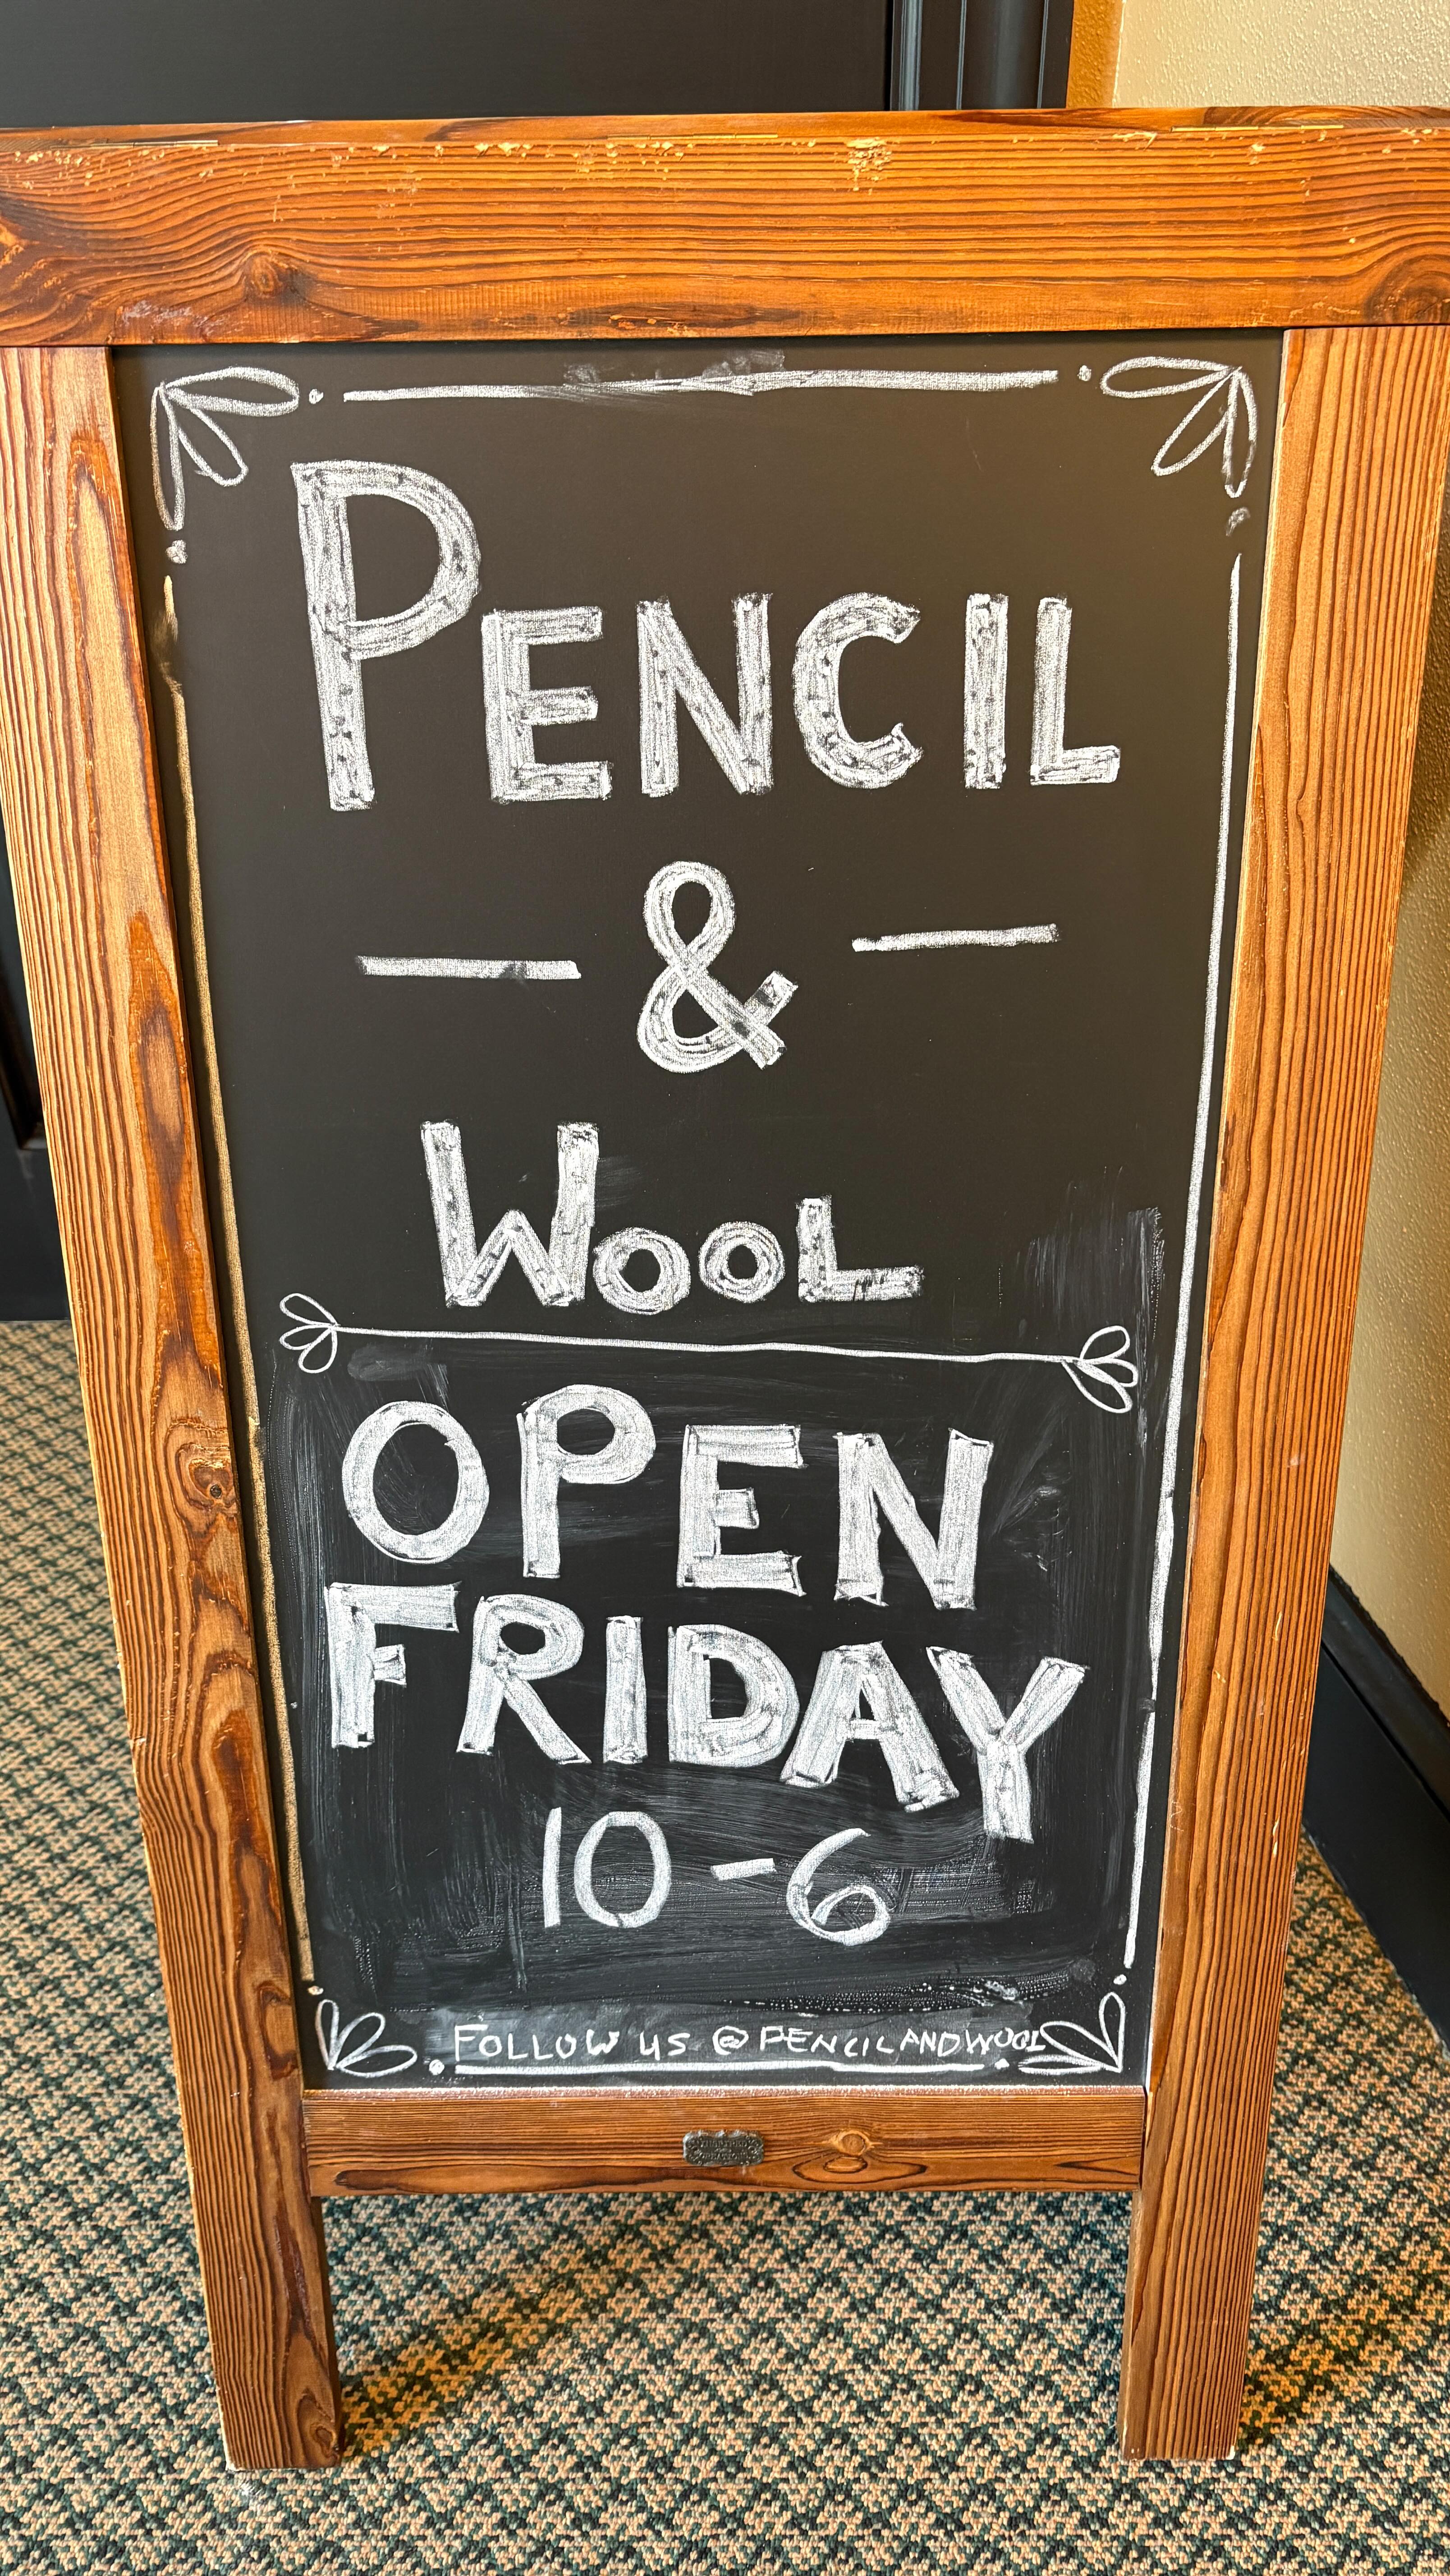 PENCIL
&
WOOL
OPEN
FRIDAY
10-6
FOLLOW US @PENCILANDWOOL